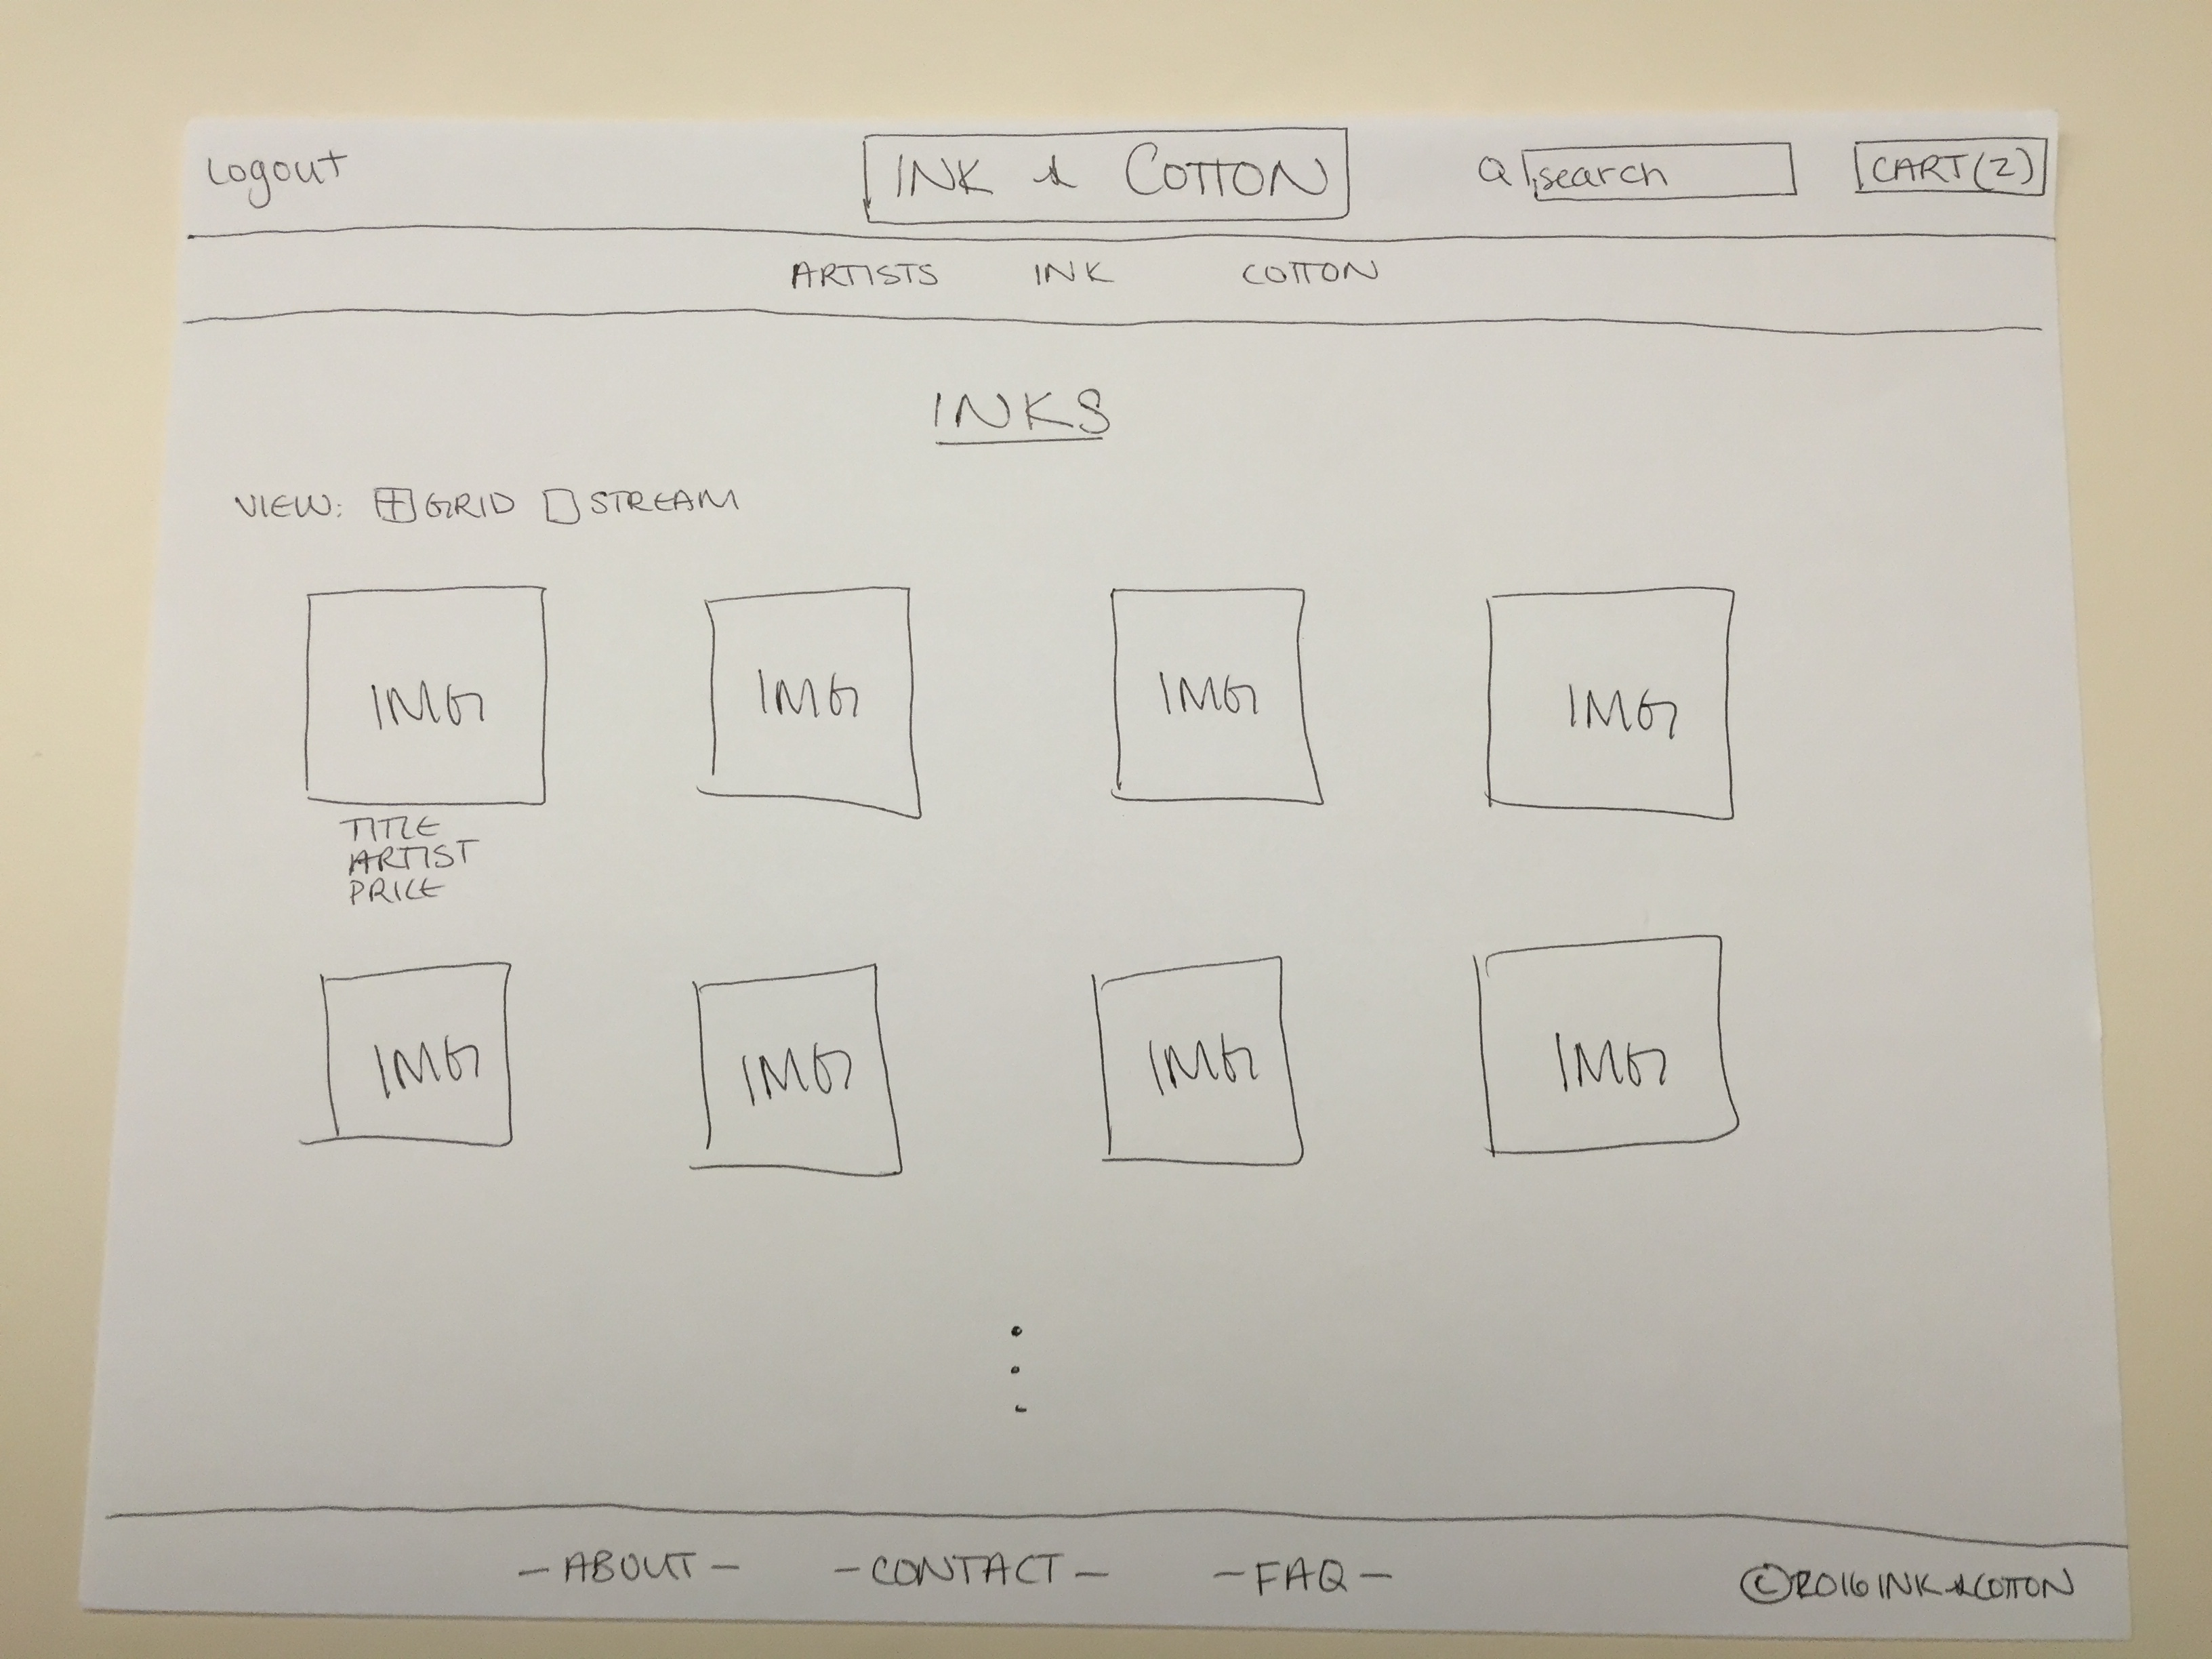 Logout
INK & COTTON
search
CART(2)
ARTISTS INK COTTON
INKS
VIEW: GRID STREAM
IMG IMG IMG IMG
TITLE
ARTIST
PRICE
IMG IMG IMG IMG
-ABOUT- -CONTACT- -FAQ-
©2016 INK & COTTON